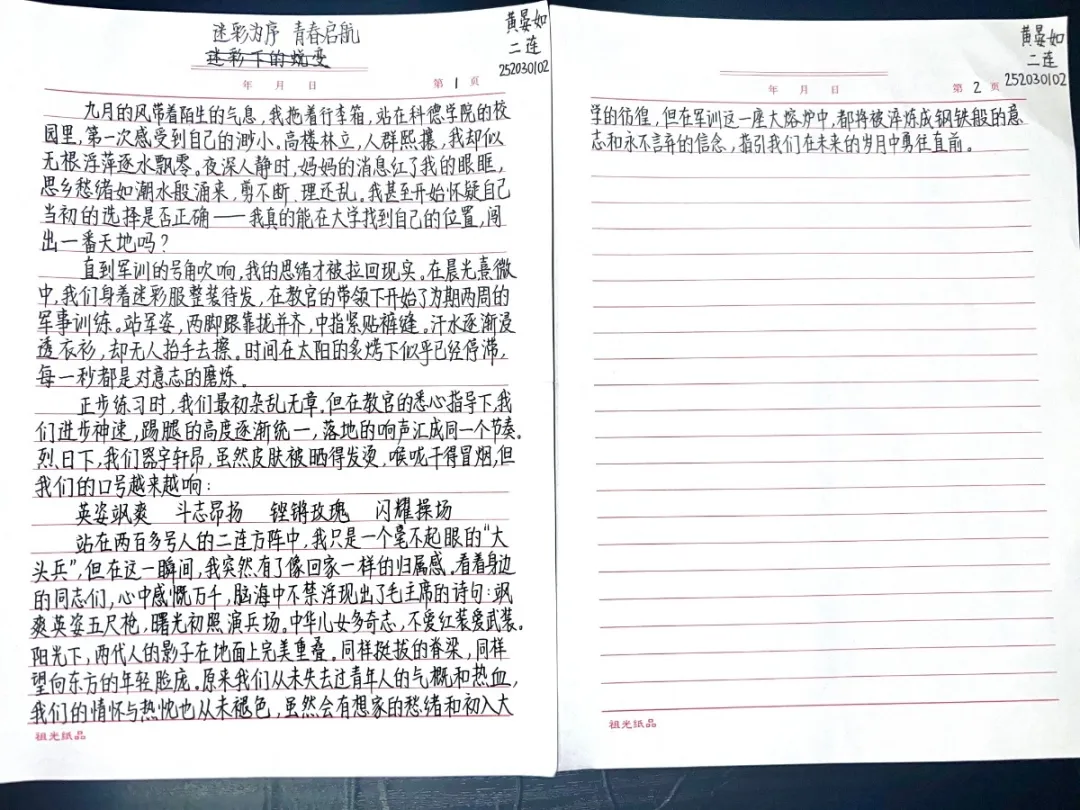 迷彩为序 青春启航
迷彩下的蜕变
黄晏如
二连
252030102
年 月 日 第 1 页
九月的风带着陌生的气息,我拖着行李箱,站在科德学院的校
园里,第一次感受到自己的渺小。高楼林立,人群熙攘,我却似
无根浮萍逐水飘零。夜深人静时,妈妈的消息红了我的眼眶,
思乡愁绪如潮水般涌来,剪不断、理还乱。我甚至开始怀疑自己
当初的选择是否正确——我真的能在大学找到自己的位置,闯
出一番天地吗?
直到军训的号角吹响,我的思绪才被拉回现实。在晨光熹微
中,我们身着迷彩服整装待发,在教官的带领下开始了为期两周的
军事训练。站军姿,两脚跟靠拢并齐,中指紧贴裤缝。汗水逐渐浸
透衣衫,却无人抬手去擦。时间在太阳的炙烤下似乎已经停滞,
每一秒都是对意志的磨炼。
正步练习时,我们最初杂乱无章。但在教官的悉心指导下,我
们进步神速,踢腿的高度逐渐统一,落地的响声汇成同一个节奏。
烈日下,我们器宇轩昂,虽然皮肤被晒得发烫,喉咙干得冒烟,但
我们的口号越来越响:
英姿飒爽 斗志昂扬 铿锵玫瑰 闪耀操场
站在两百多号人的二连方阵中,我只是一个毫不起眼的“大
头兵”,但在这一瞬间,我突然有了像回家一样的归属感。看着身边
的同志们,心中感慨万千,脑海中不禁浮现出了毛主席的诗句:飒
爽英姿五尺枪,曙光初照演兵场。中华儿女多奇志,不爱红装爱武装。
阳光下,两代人的影子在地面上完美重叠。同样挺拔的脊梁,同样
望向东方的年轻脸庞。原来我们从未失去过青年人的气概和热血,
我们的情怀与热忱也从未褪色,虽然会有想家的愁绪和初入大
祖光纸品
黄晏如
二连
252030102
年 月 日 第 2 页
学的彷徨,但在军训这一座大熔炉中,都将被淬炼成钢铁般的意
志和永不言弃的信念,指引我们在未来的岁月中勇往直前。
祖光纸品